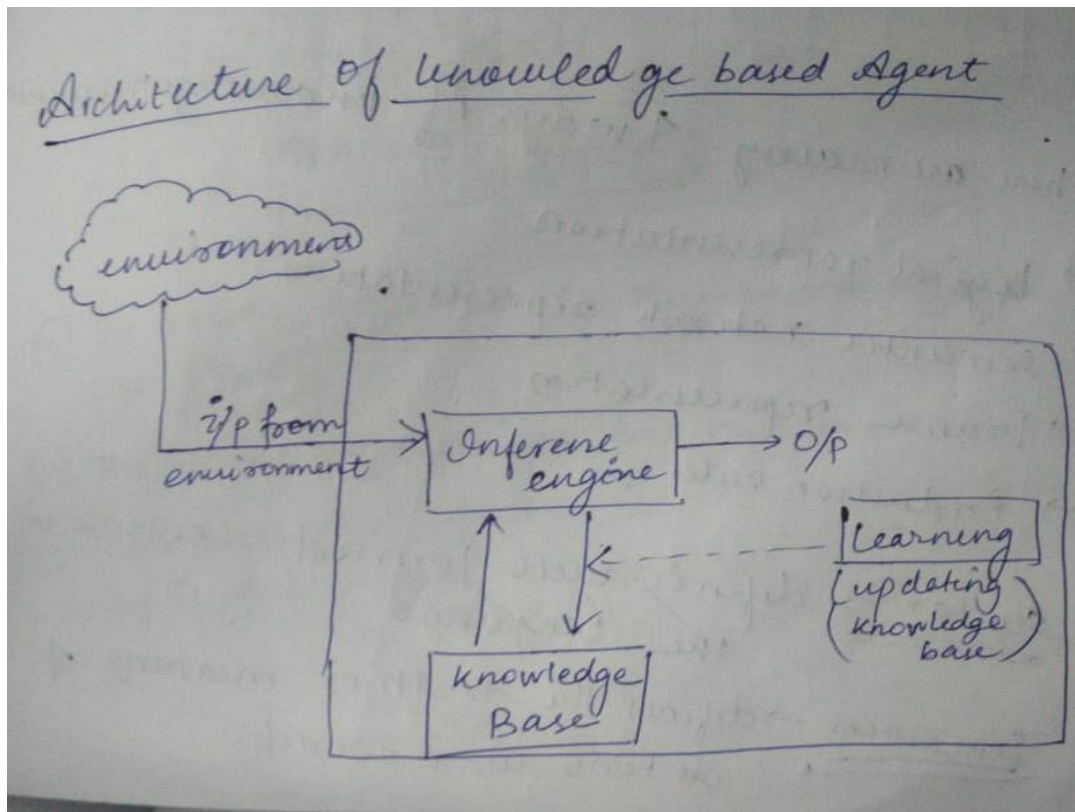 Architecture of knowledge based Agent
environment
i/p from
environment
Inferene
engine
O/p
Learning
(updating
knowledge
base)
knowledge
Base